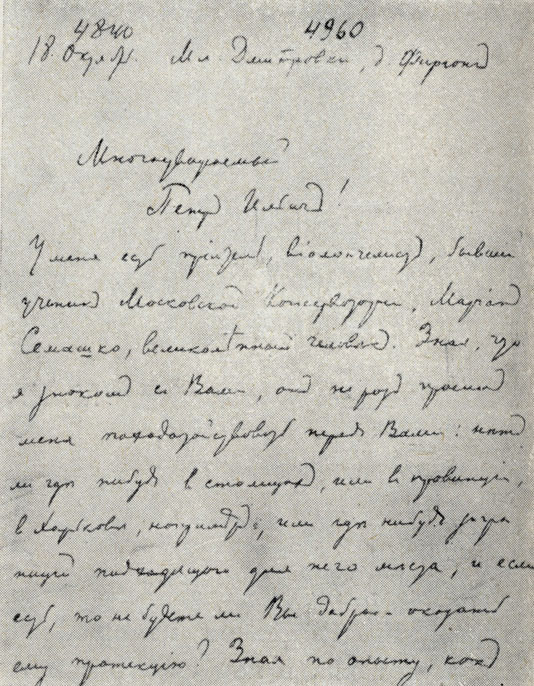 4840 4960
18 Октяб. Мл. Дмитровка, д. Фирганг
Многоуважаемый
Петр Ильич!
У меня есть приятель, віолончелист, бывший
ученик Московской Консерваторіи, Маріан
Семашко, великолѣпный человѣк. Зная, что
я знаком с Вами, он не раз просил
меня походатайствовать перед Вами: нет
ли где нибудь в столицах, или в провинціи,
в Харькове, например, или где нибудь загра
ницей подходящаго для него места, и если
есть, то не будете ли Вы добры оказать
ему протекцію? Зная по опыту, как